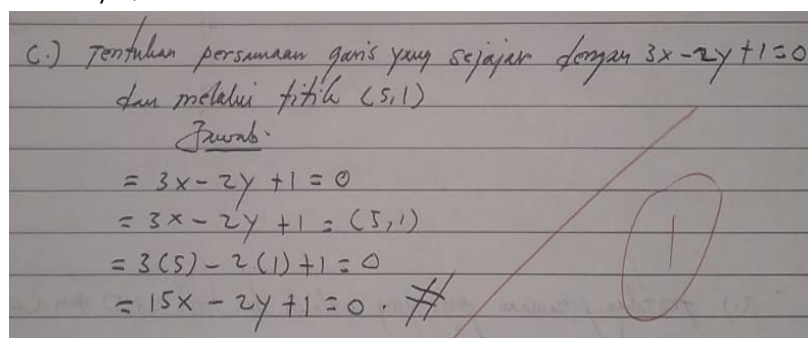 C.) Tentukan persamaan garis yang sejajar dengan 3x - 2y + 1 = 0
dan melalui titik (5,1)
Jawab.
= 3x - 2y + 1 = 0
= 3x - 2y + 1 = (5,1)
= 3(5) - 2(1) + 1 = 0
= 15x - 2y + 1 = 0. #
1